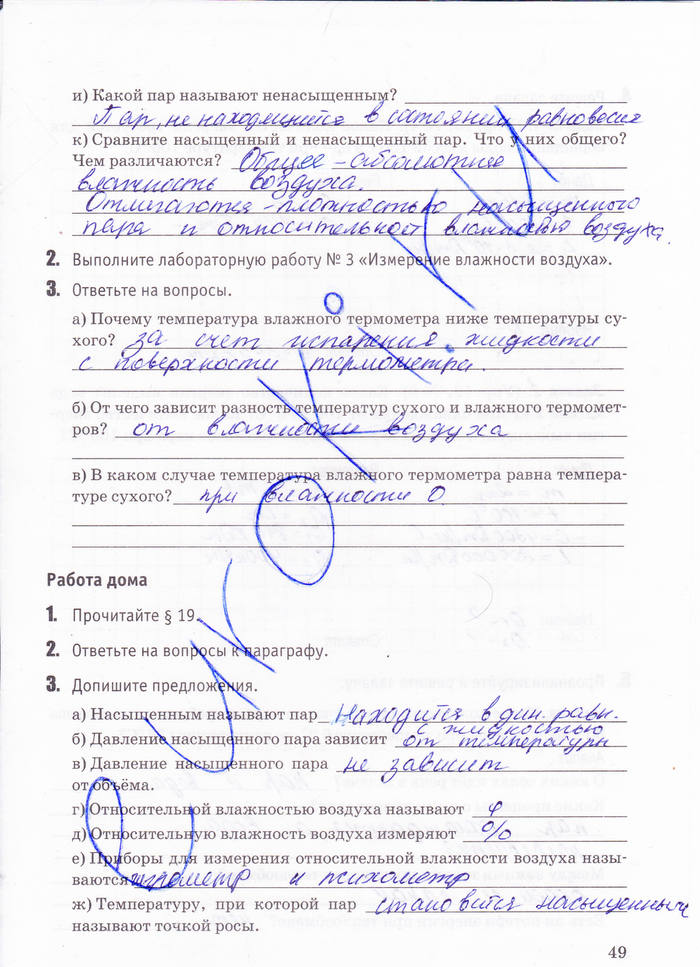 и) Какой пар называют ненасыщенным?
Пар, не находящийся в состоянии равновесия
к) Сравните насыщенный и ненасыщенный пар. Что у них общего?
Чем различаются? Общее – абсолютная
влажность воздуха.
Отличаются – плотностью насыщенного
пара и относительност влажностью воздуха.
2. Выполните лабораторную работу № 3 «Измерение влажности воздуха».
3. Ответьте на вопросы.
а) Почему температура влажного термометра ниже температуры су-
хого? за счет испарения жидкости
с поверхности термометра.
б) От чего зависит разность температур сухого и влажного термомет-
ров? от влажности воздуха
в) В каком случае температура влажного термометра равна темпера-
туре сухого? при влажности 0.
Работа дома
1. Прочитайте § 19.
2. Ответьте на вопросы к параграфу.
3. Допишите предложения.
а) Насыщенным называют пар находится в дин. равн.
с жидкостью
б) Давление насыщенного пара зависит от температуры
в) Давление насыщенного пара не зависит
от объёма.
г) Относительной влажностью воздуха называют φ
д) Относительную влажность воздуха измеряют %
е) Приборы для измерения относительной влажности воздуха назы-
ваются гигрометр и психометр
ж) Температуру, при которой пар становится насыщенным
называют точкой росы.
49